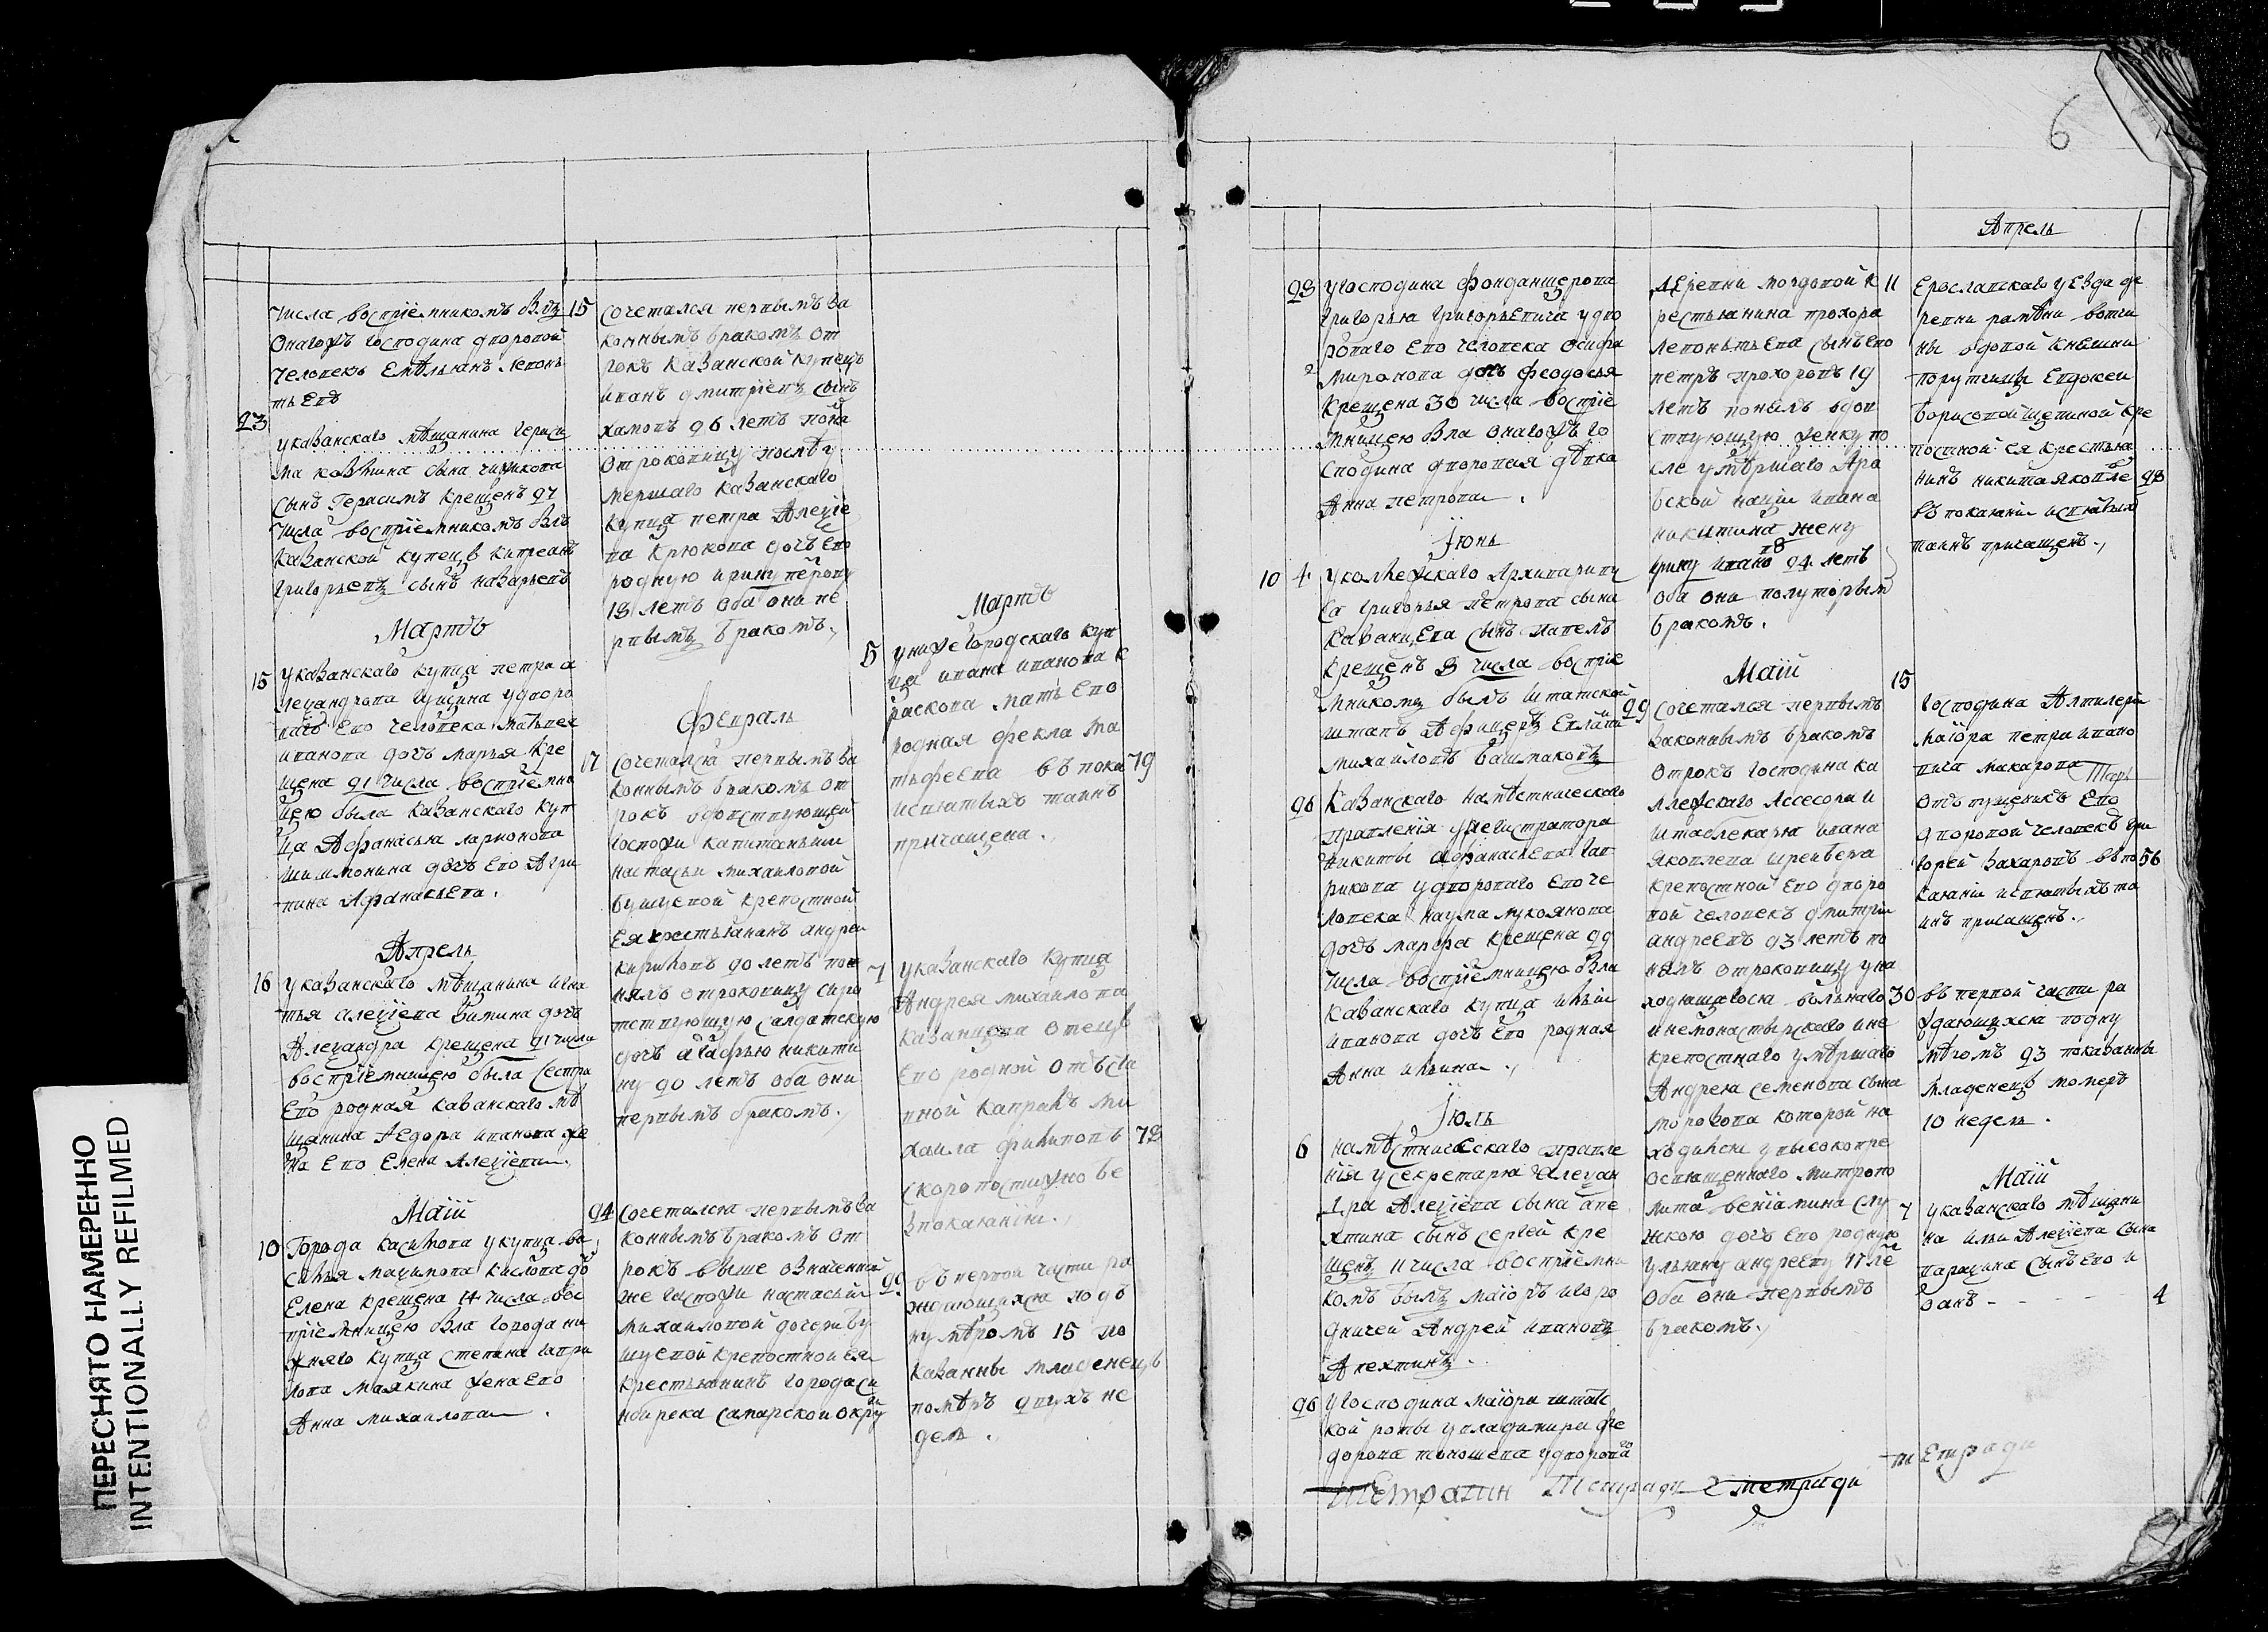 6
числа воспрiемникомъ былъ
онагожъ господина дворовой
человекъ Емельянъ Леонъ
тьевъ
23
у казанскаго мещанина Гераси
ма сына
сынъ Герасимъ крещенъ 27
числа воспрiемникомъ былъ
казанской купецъ Кипреанъ
Григорьевъ сынъ Назарьевъ
Мартъ
15 у казанскаго купца Петра а
лександрова у дворо
ваго ево человека Матвея
Иванова дочь Марья кре
щена 21 числа воспрiемни
цею была казанскаго куп
ца Афанасья Ларионова
дочь ево Агри
пина Афанасьева.
Апрель
16 у казанскаго мещанина Игна
тья Алеѯiева Зимина дочь
Алеѯандра крещена 21 числа
воспрiемницею была сестра
ево родная казанскаго ме
щанина Федора Иванова же
на ево Елена Алеѯiева.
Маiй
10 города Касимова у купца Ва
силья Маѯимова Кислова до
Елена крещена 14 числа вос
прiемницею была города ни
жняго купца Степана Гаври
лова Маякина жена ево
Анна Михаилова.
15 сочетался первымъ за
коннымъ бракомъ от
рокъ казанской купецъ
Иванъ Дмитрiевъ сынъ
26 летъ поня
отроковицу после у
мершаго казанскаго
купца Петра Алеѯiе
ва Крюкова дочь ево
родную Ирину Петрову
18 летъ оба они пе
рвымъ бракомъ.
Февраль
17 сочетался первымъ за
коннымъ бракомъ от
рокъ вдовствующей
госпожи капитанши
Настасьи Михаиловой
крепостной
ея крестьянинъ Андреи
Кириловъ 20 летъ пои
нялъ отроковицу сиро
тствующую салдатскую
дочь Агафью Никити
ну 20 летъ оба они
первымъ бракомъ.
24 сочетался первымъ за
коннымъ бракомъ от
рокъ выше означенной
же госпожи Настасьи
Михаиловой дочери Бу
крепостной ея
крестьянинъ города си
мбирска самарской окру
Мартъ
5 у нижегородскаго куп
ца Ивана Иванова К
раскова мать ево
родная Фекла Ма
твеева въ пока 79
и святыхъ таинъ
причащена.
7 у казанскаго купца
Андрея Михаилова
Казанцова отецъ
ево родной отъста
вной капралъ Ми
хаила Филиповъ 78
скоропостижно бе
зпокаянiи.
29 въ первой части ра
ждающихся подъ
нумеромъ 15 по
казанны младенецъ
померъ двухъ не
дель.
28 у господина
Григорья Григорьевича у дво
роваго ево человека Осипа
Миронова дочь Феодосья
крещена 30 числа воспрiе
мницею была онагожъ го
сподина дворовая девка
Анна Петрова.
Iюнь
10 4. у колежскаго архивариу
са Григорья Петрова сына
Казанцева сынъ Павелъ
крещенъ 8 числа воспрiе
мникомъ былъ штатской
штапъ афицеръ
Михаиловъ Башмаковъ
26 казанскаго наместническаго
правленiя у регистратора
Никиты Афанасьева Гав
рилова у двороваго ево че
ловека Наума Лукоянова
дочь Марфа крещена 29
числа воспрiемницею была
казанскаго купца Ильи
Иванова дочь ево родная
Анна Ильина.
Iюль
6 наместническаго правле
нiя у секретаря Алеѯан
дра Алеѯiева сына Але
хтина сынъ Сергей кре
щенъ 11 числа воспрiемни
комъ былъ маiоръ и горо
дничей Андрей Ивановъ
Алехтинъ.
26 у господина маiора штатс
кой роты у Владимира Фе
дорова у дворова
Тетради 2 тетради
деревни Мордовой к
рестьянина Прохора
Леонътьева сынъ ево
Петръ Прохоровъ 19
летъ понялъ вдов
ствующую женку по
сле умершаго ара
бской нацiи Ивана
Никитина жену
Ирину Иванову 24 летъ
оба они полуторым
бракомъ.
Маiй
29 сочетался первымъ
законнымъ бракомъ
отрокъ господина ка
ллежскаго ассесора и
штаблекаря Ивана
Яковлева
крепостной ево дворо
вой человекъ Дмитрiи
Андреевъ 23 летъ по
нялъ отроковицу у на
ходящагося вольнаго
и немонастырскаго и не
крепостнаго умершаго
Андрея Семенова сына
Морозова которой на
ходился у высокопре
освященнаго митропо
лита Венiамина слу
жкою дочь ево родную
Ульяну Андрееву 17 ле
оба они первымъ
бракомъ.
Апрель
11 Ерославскаго уезда де
ревни Рамени вотчи
ны вдовой княгини
порутчицы Евдокеи
Борисовой кре
постной ея крестья
нинъ Никита Яковле 28
въ покаянiи и святых
таинъ причащенъ.
15 господина артилери
маiора Петра Ивано
вича Макарова
отъпущеникъ ево
дворовой человекъ Гри
горей Захаровъ въ по 56
каянiи и святыхъ та
инъ причащенъ.
30 въ первой части ра
ждающихся подну
меромъ 23 показанны
младенецъ померъ
10 недель.
Маiй
7 у казанскаго мещани
на Ильи Алеѯiева сына
сынъ ево И
ванъ - - - - 4
тетради
ПЕРЕСНЯТО НАМЕРЕННО
INTENTIONALLY REFILMED